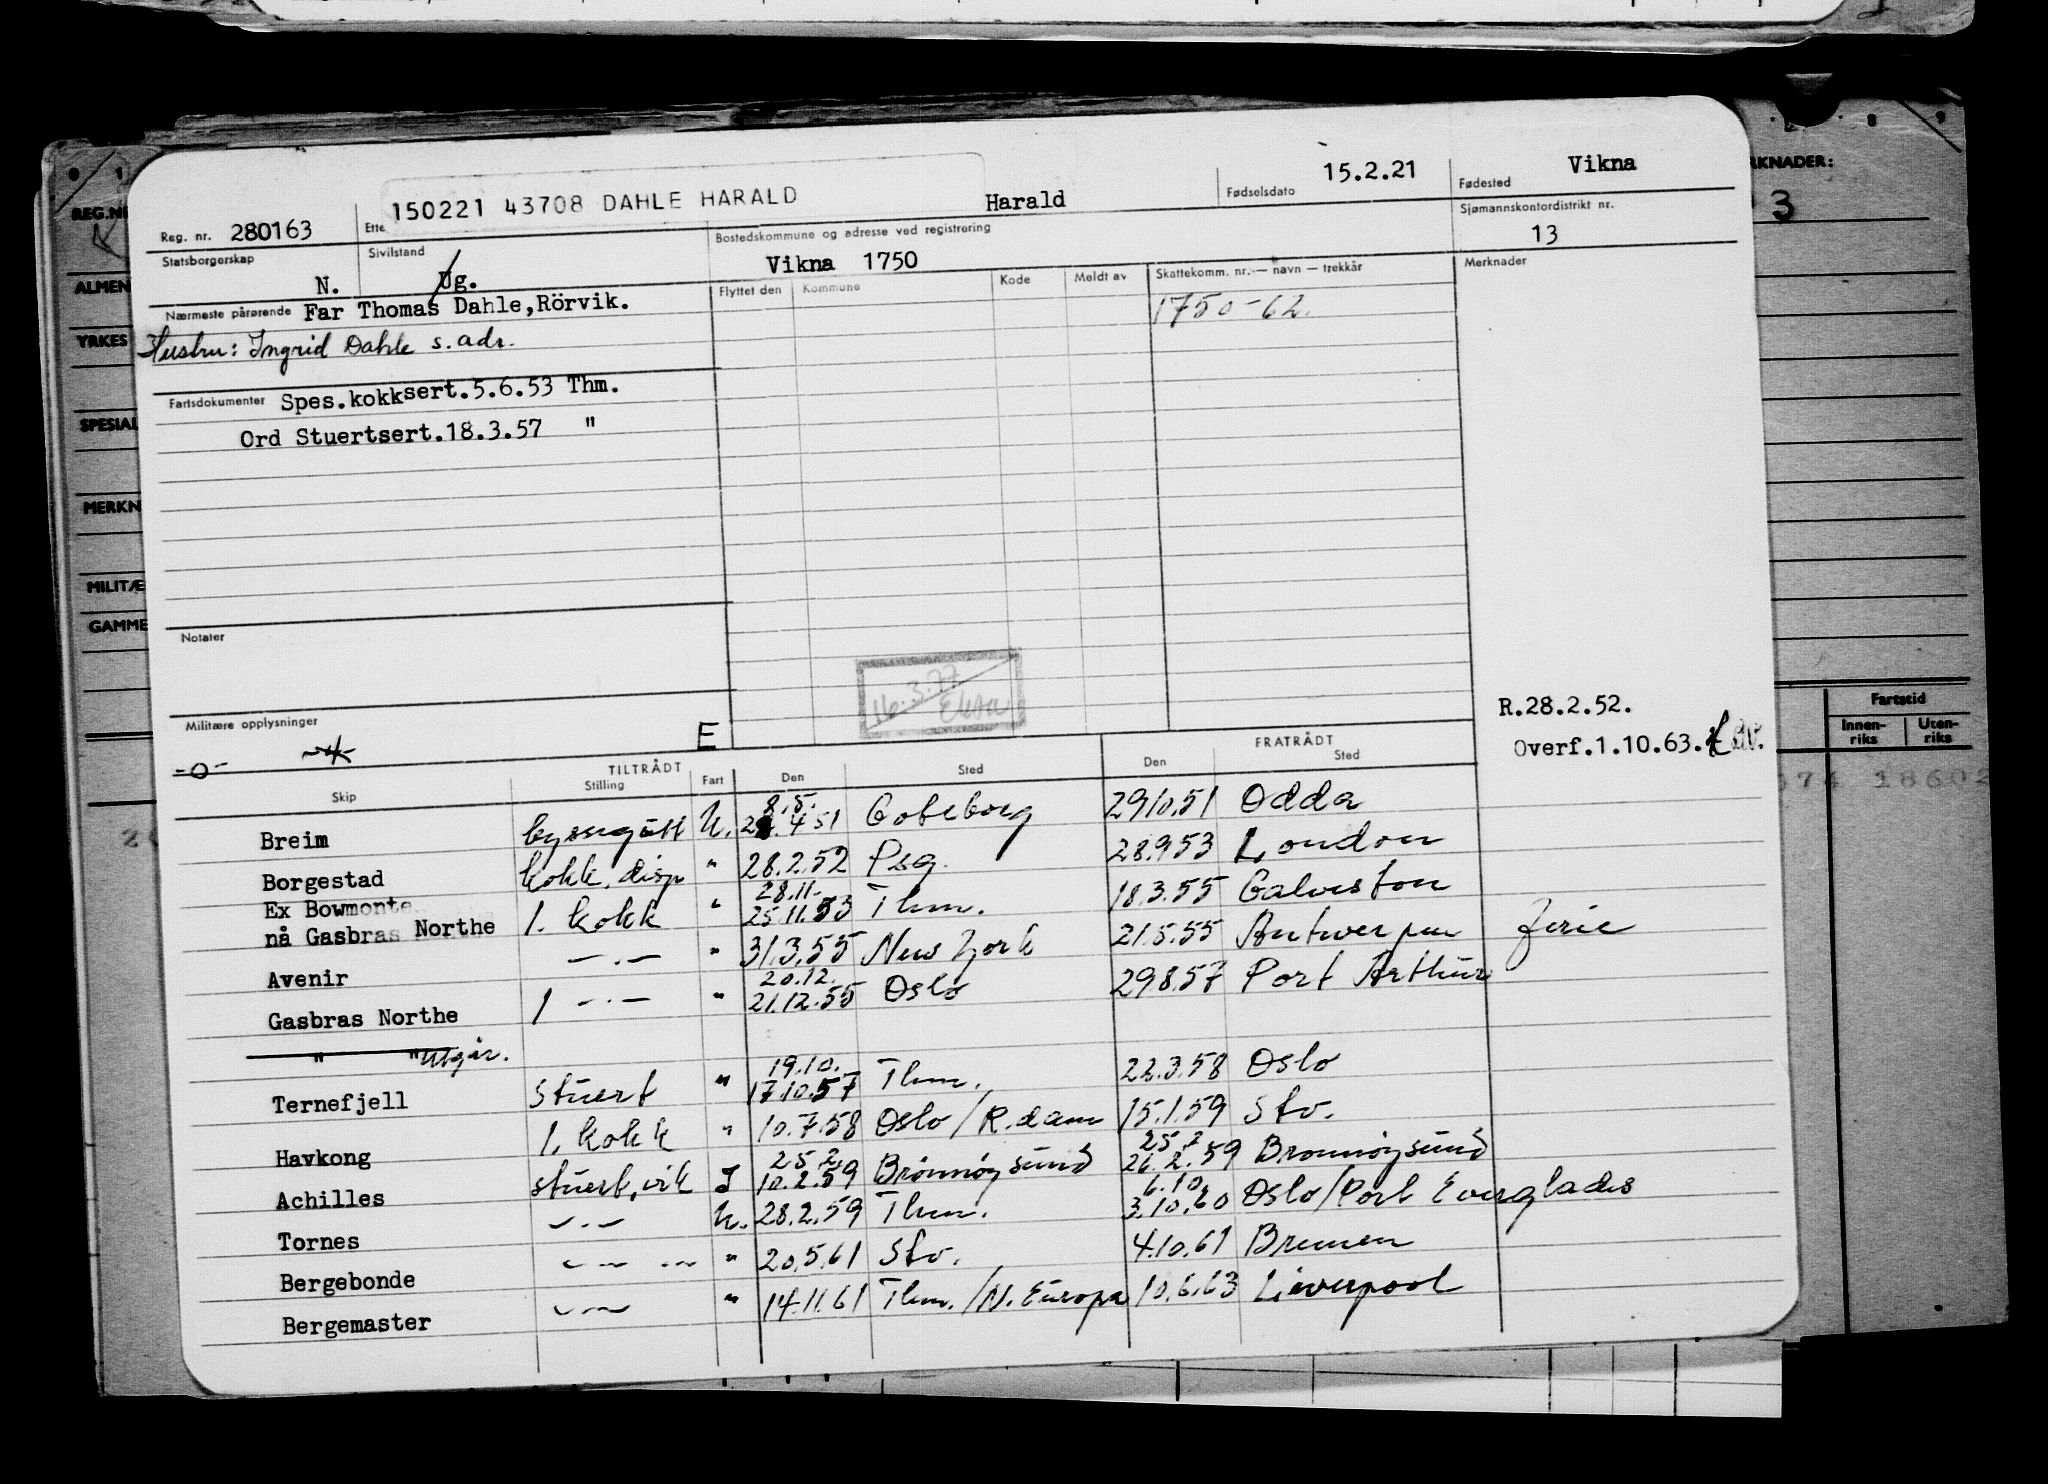 Reg. nr. 280163 Ette 150221 43708 DAHLE HARALD Harald Fødselsdato 15.2.21 Fødested Vikna
Statsborgerskap N. Sivilstand Ug. Bostedskommune og adresse ved registrering Vikna 1750 Sjømannskontordistrikt nr. 13
Nærmeste pårørende Far Thomas Dahle,Rörvik. Flyttet den Kommune Kode Meldt av Skattekomm. nr. — navn — trekkår Merknader
1750-62.
Hustru: Ingrid Dahle s. adr.
Fartsdokumenter Spes.kokksert.5.6.53 Thm.
Ord Stuertsert.18.3.57 "
Notater
16.3.77
Militære opplysninger
-o- E
R.28.2.52.
Overf.1.10.63.
TILTRÅDT FRATRÅDT
Skip Stilling Fart Den Sted Den Sted
8.5.
Breim byssegutt U. 4 51 Goteborg 29.10.51 Odda
Borgestad kokk, disp " 28.2.52 Psg. 28.9.53 London
28.11.
Ex Bowmonte
nå Gasbras Northe 1. kokk " 25.11.53 Thm. 18.3.55 Galveston
Avenir —.— " 31.3.55 New York 21.5.55 Antwerpen ferie
20.12.
Gasbras Northe 1 —.— " 21.12.55 Oslo 29.8.57 Port Arthur
" " Utgår.
19.10.
Ternefjell Stuert " 17.10.57 Thm. 22.3.58 Oslo
Havkong 1. kokk " 10.7.58 Oslo/R.dam 15.1.59 Stv.
25.2. 25.2
Achilles stuert, vik I 10.2.59 Brönnöysund 26.2.59 Bronnöysund
6.10.
Tornes —.— U. 28.2.59 Thm. 3.10.60 Oslo/Port Everglades
Bergebonde —.— " 20.5.61 Stv. 4.10.61 Bremen
Bergemaster —.— " 14.11.61 Thm./N. Europa 10.6.63 Liverpool
REG.NR
ALMEN
YRKES
SPESIAL
MERKN
MILITÆ
GAMME
RKNADER:
3
Fartstid
Innen-riks Uten-riks
74 18602